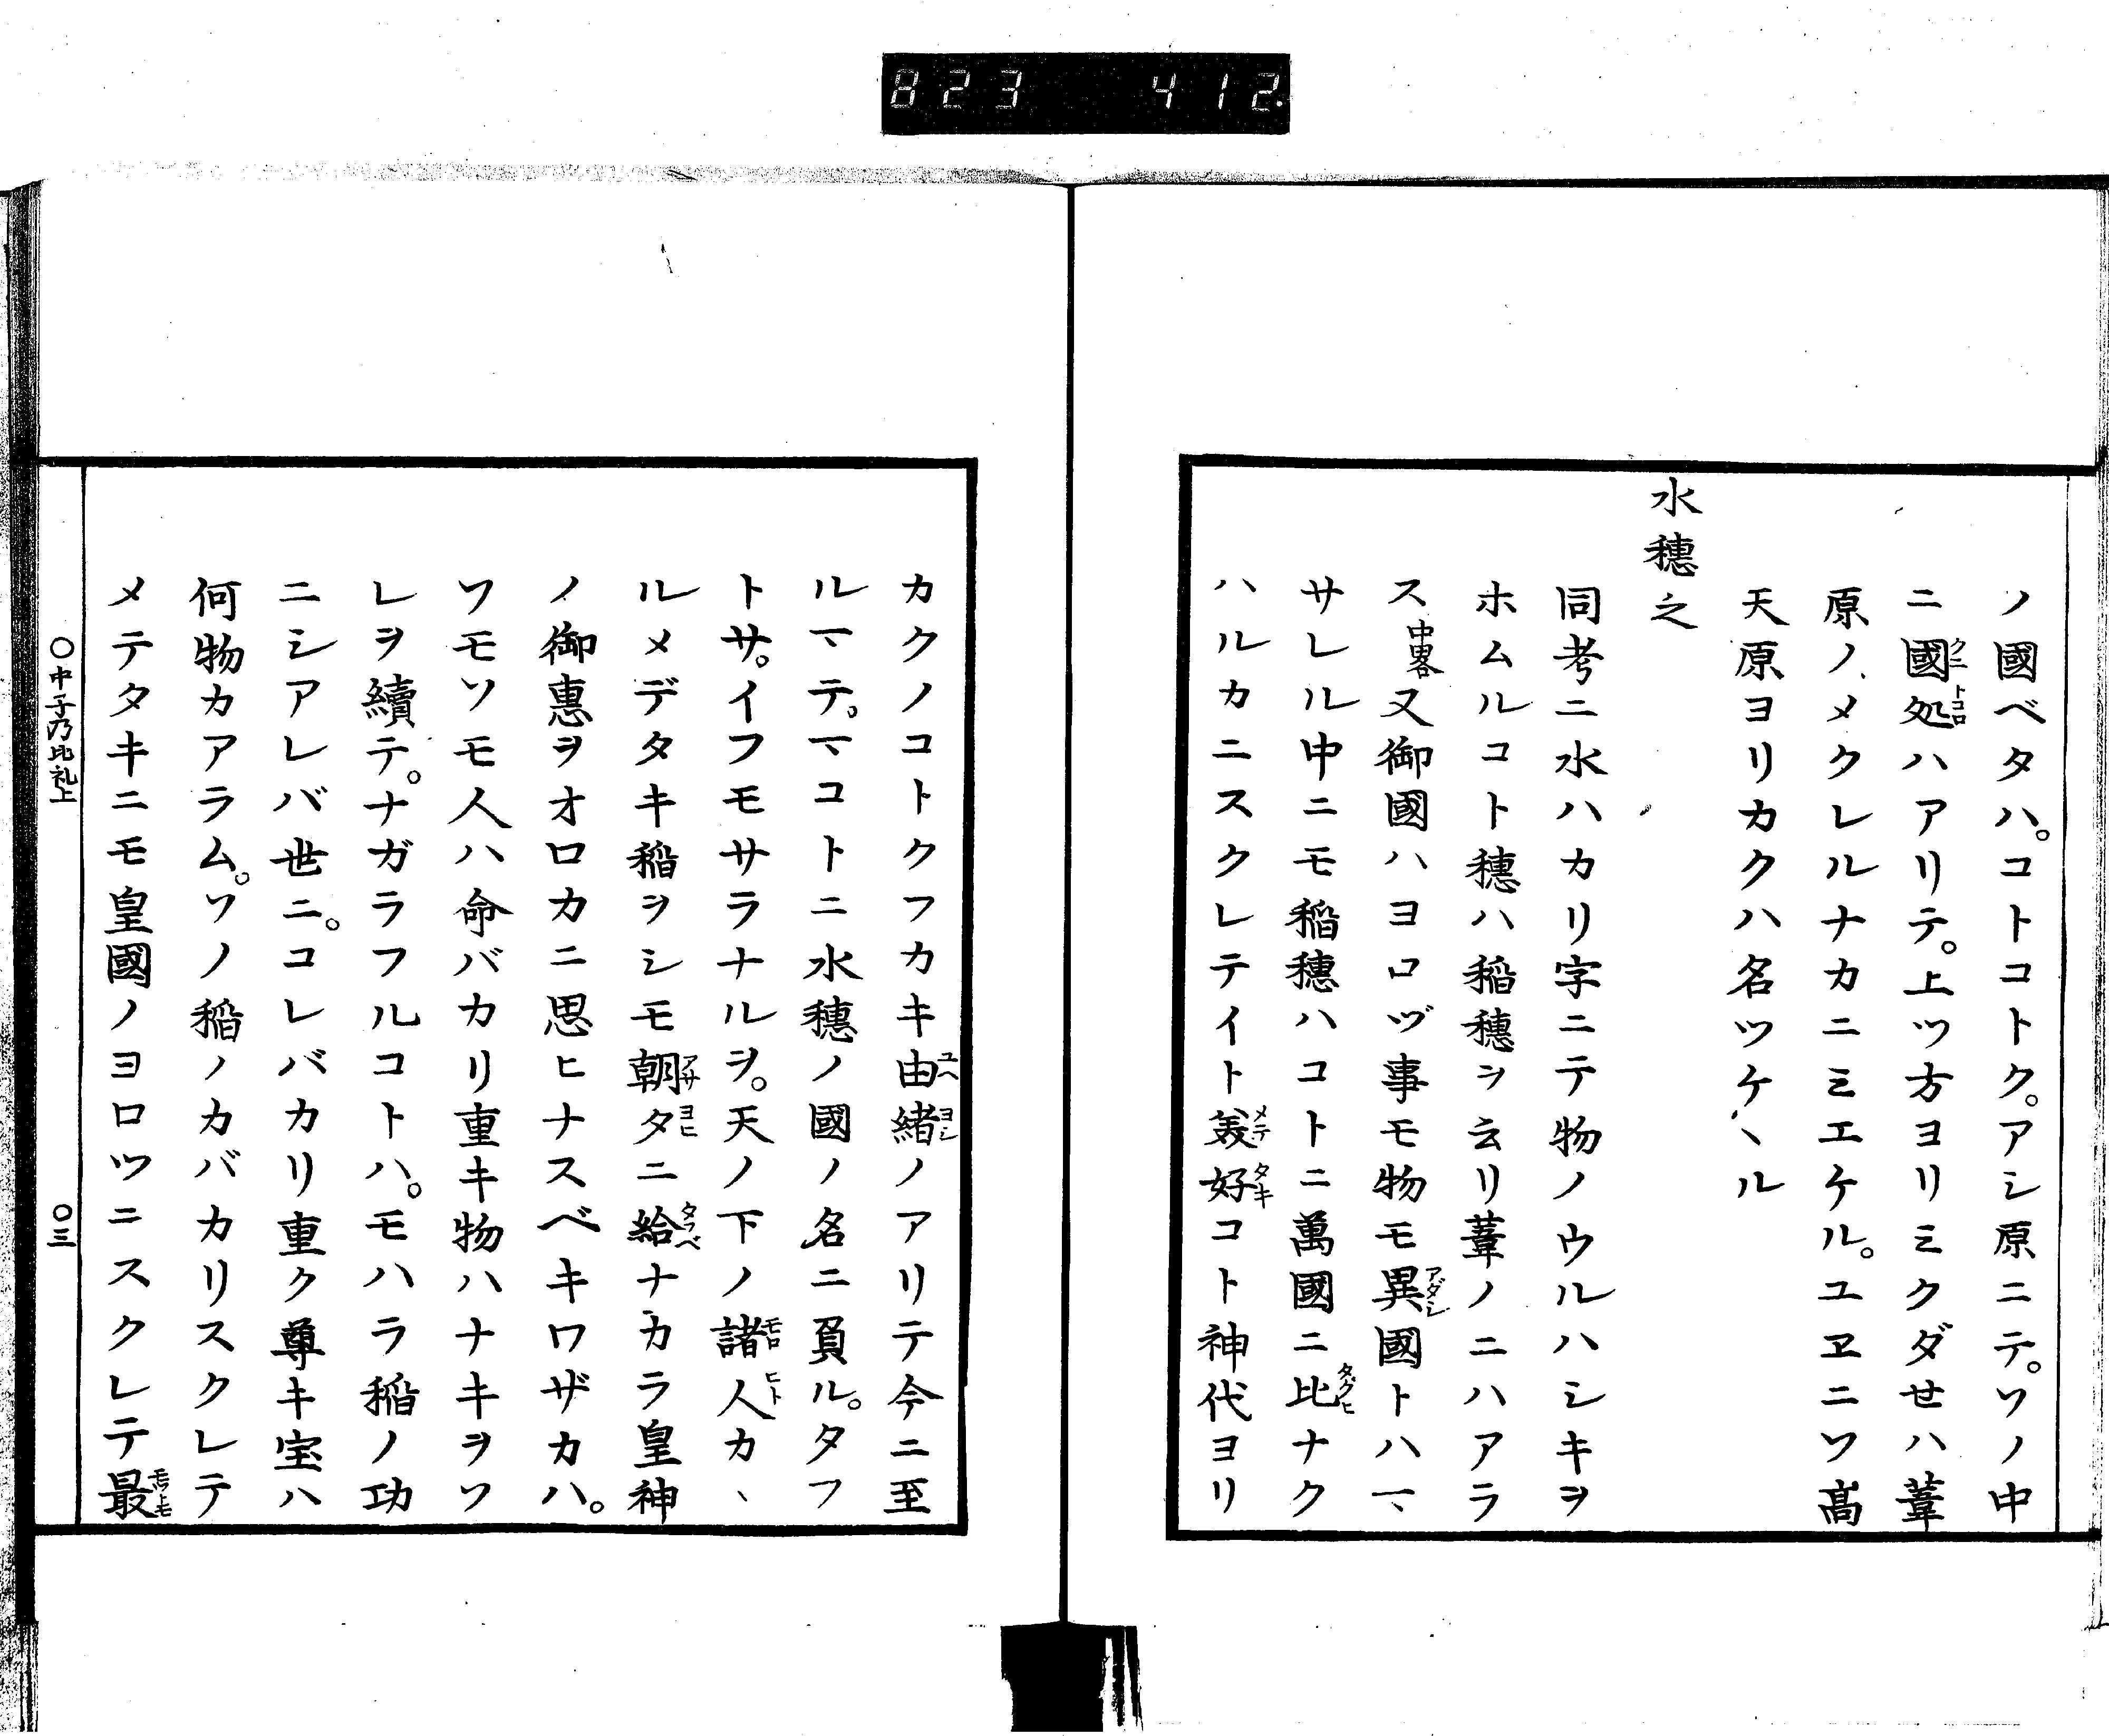 823 412.
ノ國ベタハ。コトコトク。アシ原ニテ。ソノ中
ニ國処ハアリテ。上ツ方ヨリミクダせハ葦
原ノメクレルナカニミエケル。ユヱニソ高
天原ヨリカクハ名ツケヽル
水穂之
同考ニ水ハカリ字ニテ物ノウルハシキヲ
ホムルコト穗ハ稲穂ヲ云リ葦ノニハアラ
ス中畧又御國ハヨロヅ事モ物モ異國トハマ
サレル中ニモ稲穗ハコトニ萬國ニ比ナク
ハルカニスクレテイト美好コト神代ヨリ
カクノコトクフカキ由緒ノアリテ今ニ至
ルマテ。マコトニ水穗ノ國ノ名ニ負ル。タフ
トサ。イフモサラナルヲ。天ノ下ノ諸人カヽ
ルメデタキ稲ヲシモ朝タニ給ナカラ皇神
ノ御惠ヲオロカニ思ヒナスベキワザカハ。
ソモソモ人ハ命バカリ重キ物ハナキヲソ
レヲ續テ。ナガラフルコトハ。モハラ稲ノ功
ニシアレバ世ニ。コレバカリ重ク尊キ宝ハ
何物カアラム。ソノ稲ノカバカリスクレテ
メテタキニモ皇國ノヨロツニスクレテ最
〇中子乃比礼上 〇三